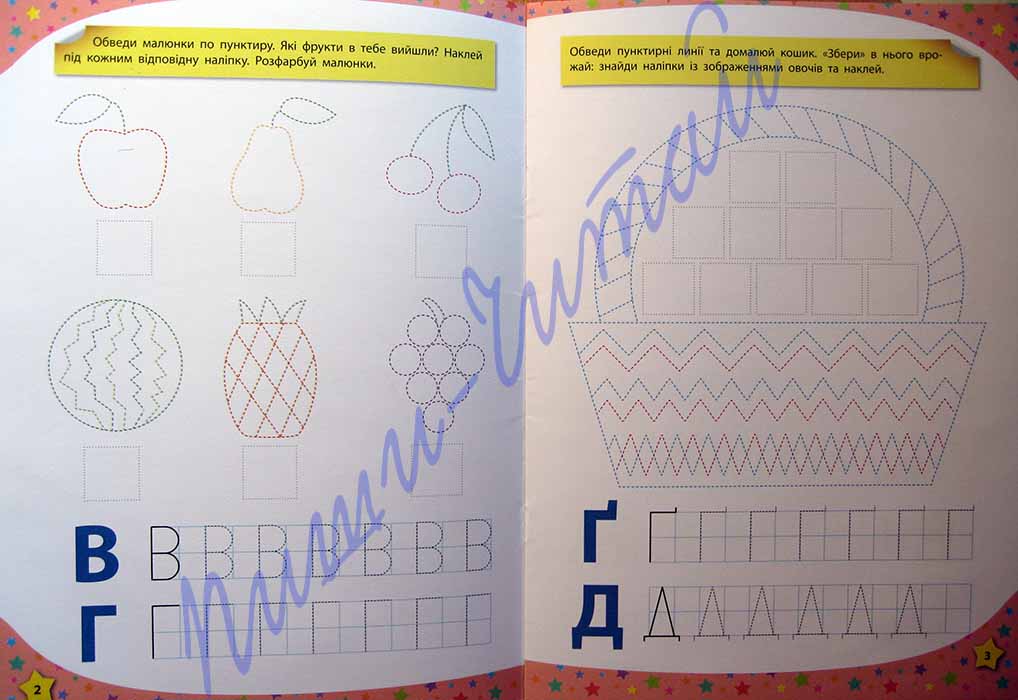 Обведи малюнки по пунктиру. Які фрукти в тебе вийшли? Наклей
під кожним відповідну наліпку. Розфарбуй малюнки.
В В В В В В В В
Г Г Г Г Г Г Г Г
2
Обведи пунктирні лінії та домалюй кошик. «Збери» в нього вро-
жай: знайди наліпки із зображеннями овочів та наклей.
Ґ Ґ Ґ Ґ Ґ Ґ Ґ Ґ
Д Д Д Д Д Д Д
3
Пиши-Читай